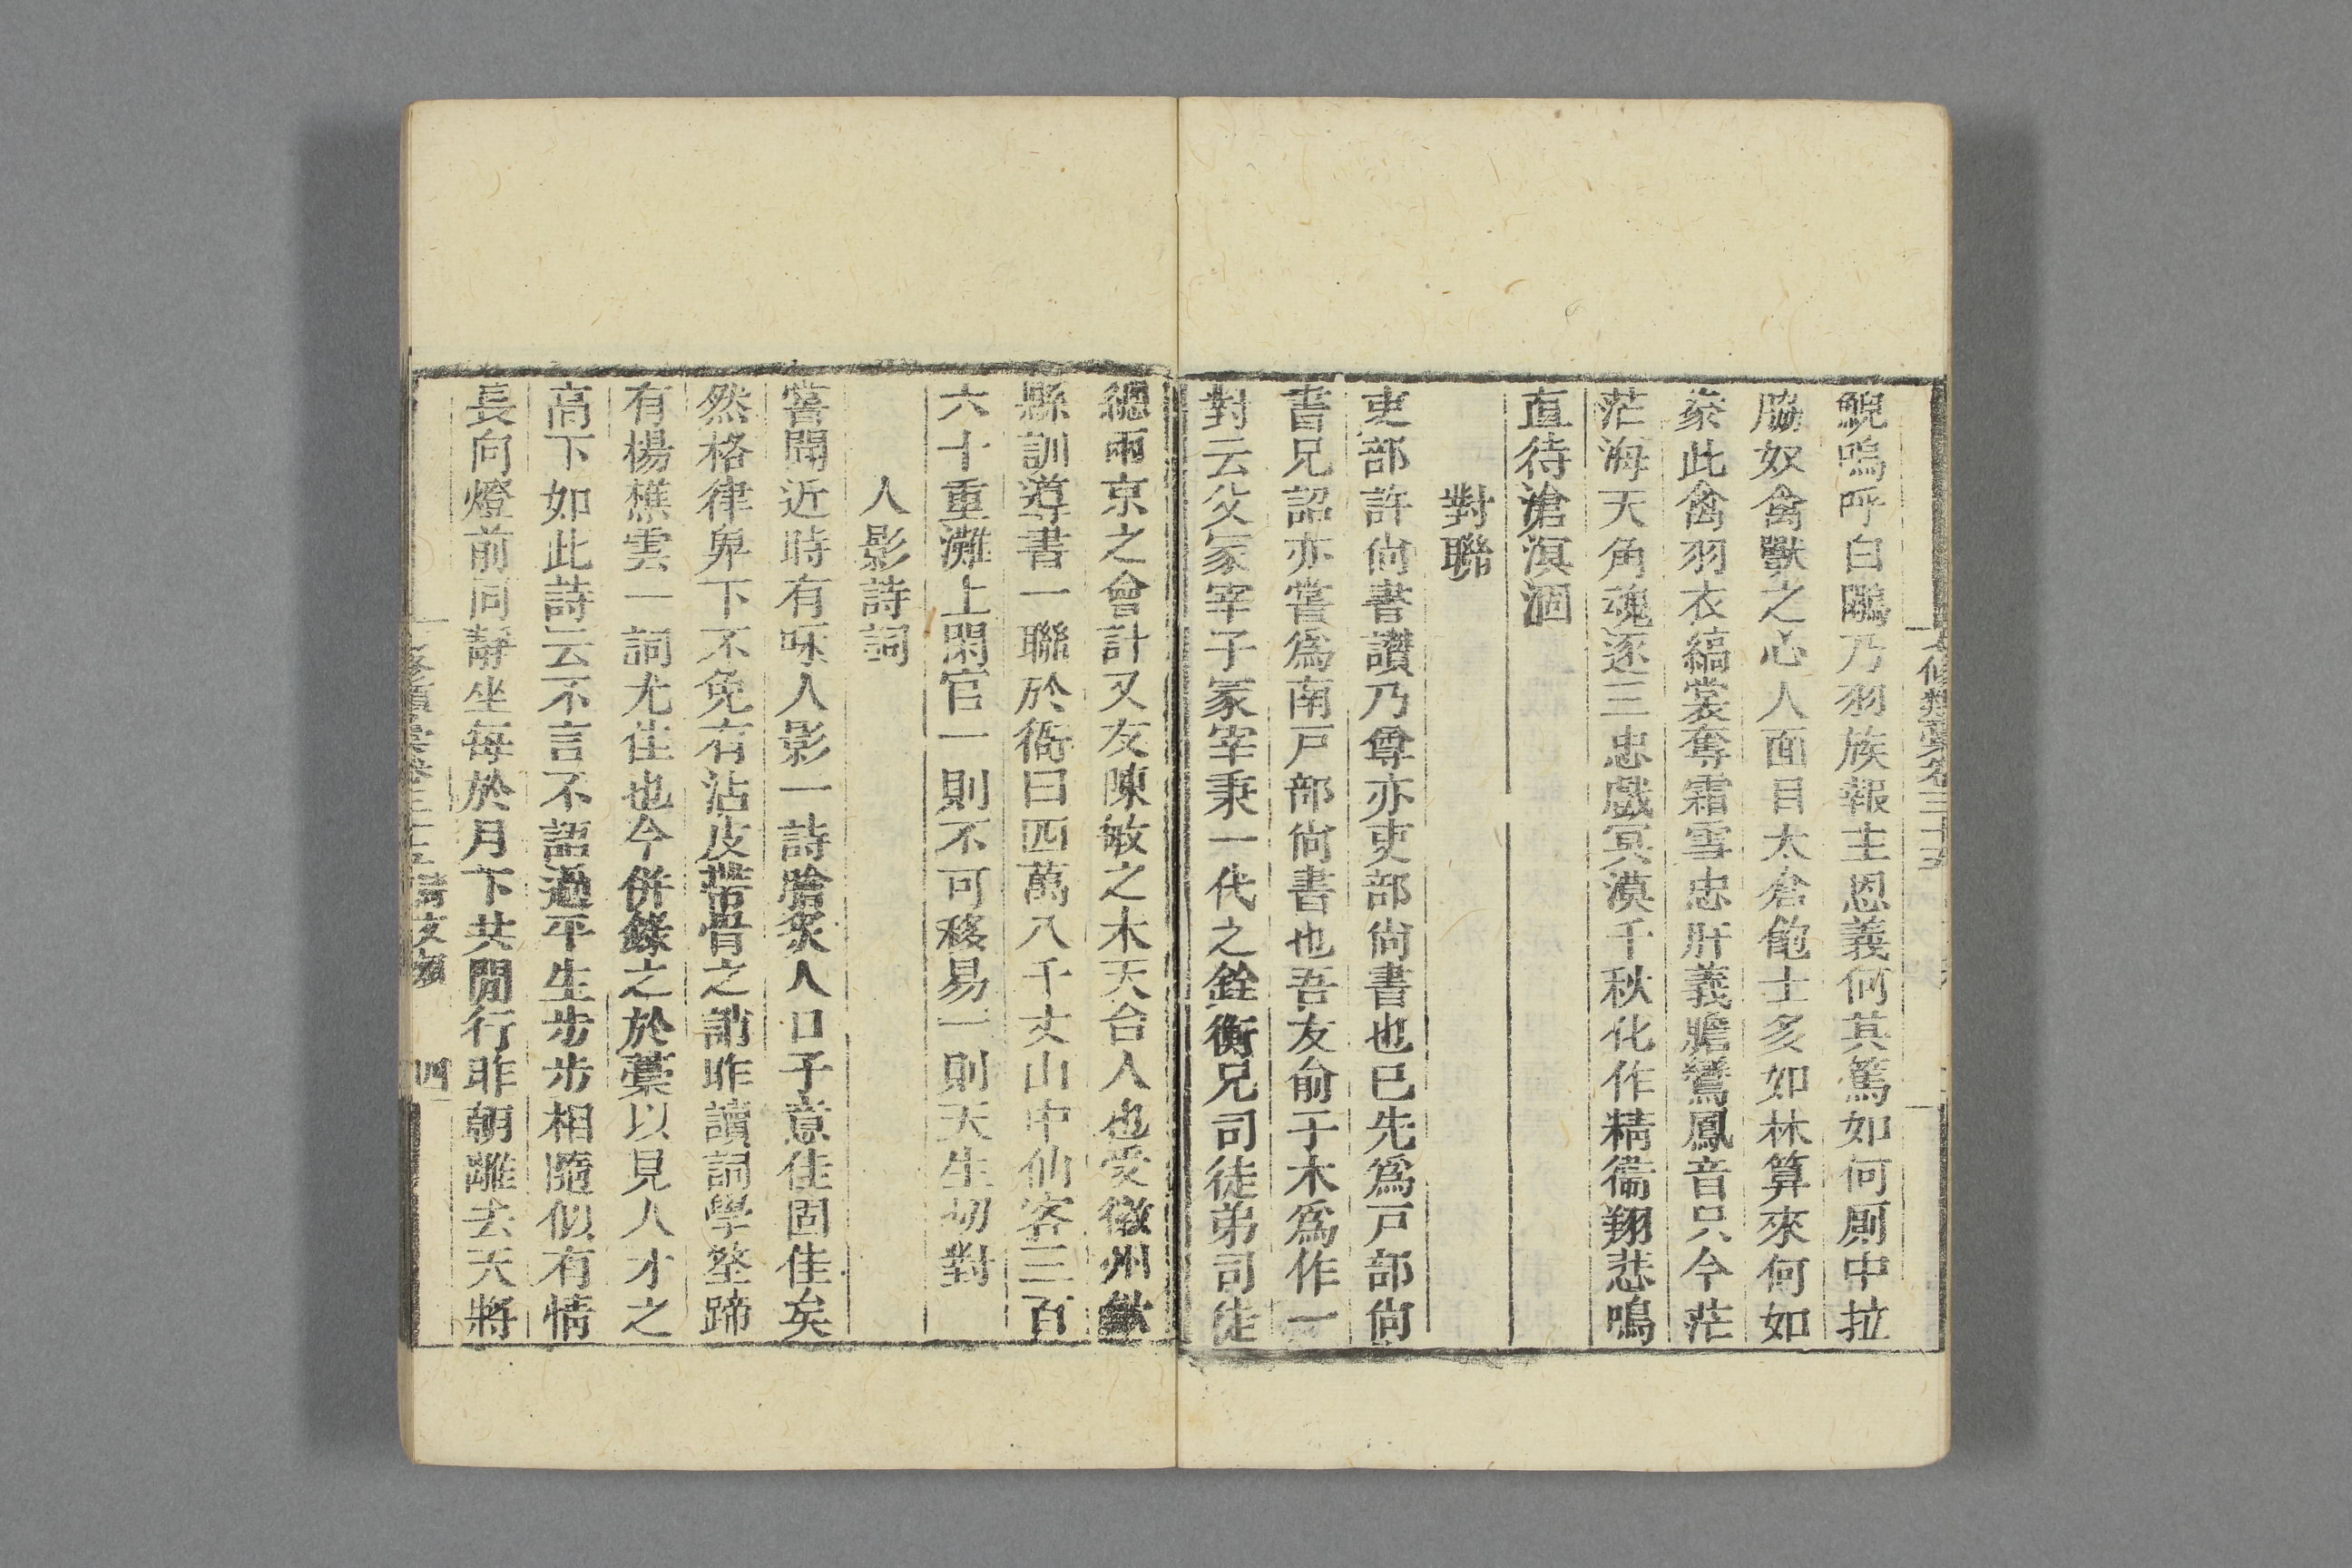 鯢嗚呼白鷴乃羽族報主恩義何其篤如何厠中拉
脇奴禽獸之心人面目太倉飽士多如林算來何如
豢此禽羽衣縞裳奪霜雪忠肝義膽鸞鳳音只今茫
茫海天角魂逐三忠戲冥漠千秋化作精衞翔悲鳴
直待滄溟涸
對聯
吏部許尚書讚乃尊亦吏部尚書也已先爲戸部尚
書兄詔亦嘗爲南戸部尚書也吾友俞子木爲作一
對云父冢宰子冢宰秉一代之銓衡兄司徒弟司徒
總兩京之會計又友陳敏之木天台人也爱徽州歙
縣訓導書一聯於衙曰四萬八千丈山中仙客三百
六十重灘上閑官一則不可移易一則天生切對
人影詩詞
嘗聞近時有咏人影一詩膾炙人口予意佳固佳矣
然格律卑下不免有沾皮帶骨之誚昨讀詞學筌蹄
有楊樵雲一詞尤佳也今併錄之於藁以見人才之
高下如此詩云不言不語過平生步步相隨似有情
長向燈前同靜坐每於月下共閒行昨朝離去天將
四